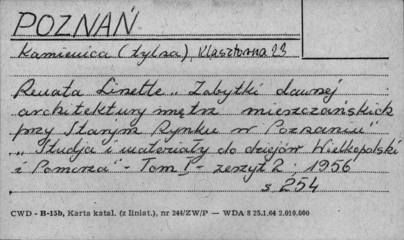 POZNAŃ
Kamienica (tylna), Klasztorna 23
Renata Linette „Zabytki dawnej
architektury wnętrz mieszczańskich
przy Starym Rynku w Poznaniu"
„Studja i materiały do dziejów Wielkopolski
i Pomorza" - Tom I - zeszyt 2. 1956
s 254
CWD - B-15b, Karta katal. (z liniat.), nr 244/ZW/P — WDA 8 25.1.64 2.010.000